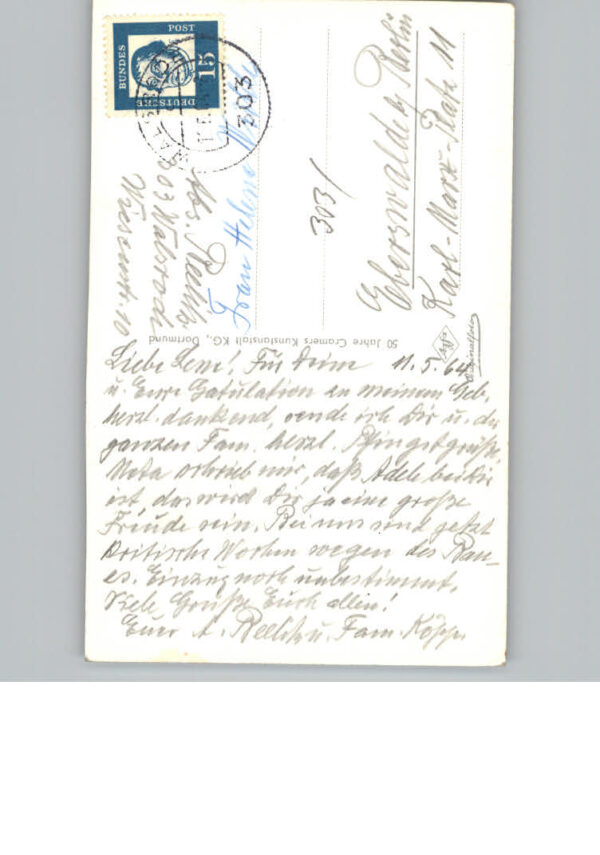 DEUTSCHE
BUNDES
POST
15
303
Abs. Reelitz
03 Walsrode
Wiesenstr. 10
Frau Helene
303/
Eberswalde b/ Berlin
Karl-Marx-Platz 11
50 Jahre Cramers Kunstanstalt KG., Dortmund
11.5.64
Liebe Leni! Für Deine
u. Eure Gatulation zu meinem Geb.
herzl. dankend, sende ich Dir u. der
ganzen Fam. herzl. Pfingstgrüße.
Meta schrieb mir, daß Adele bei Dir
ist, das wird Dir ja eine große
Freude sein. Bei uns sind jetzt
kritische Wochen wegen des Bau-
es. Einzug noch unbestimmt.
Viele Grüße Euch allen!
Euer A. Reelitz u. Fam. Köpp